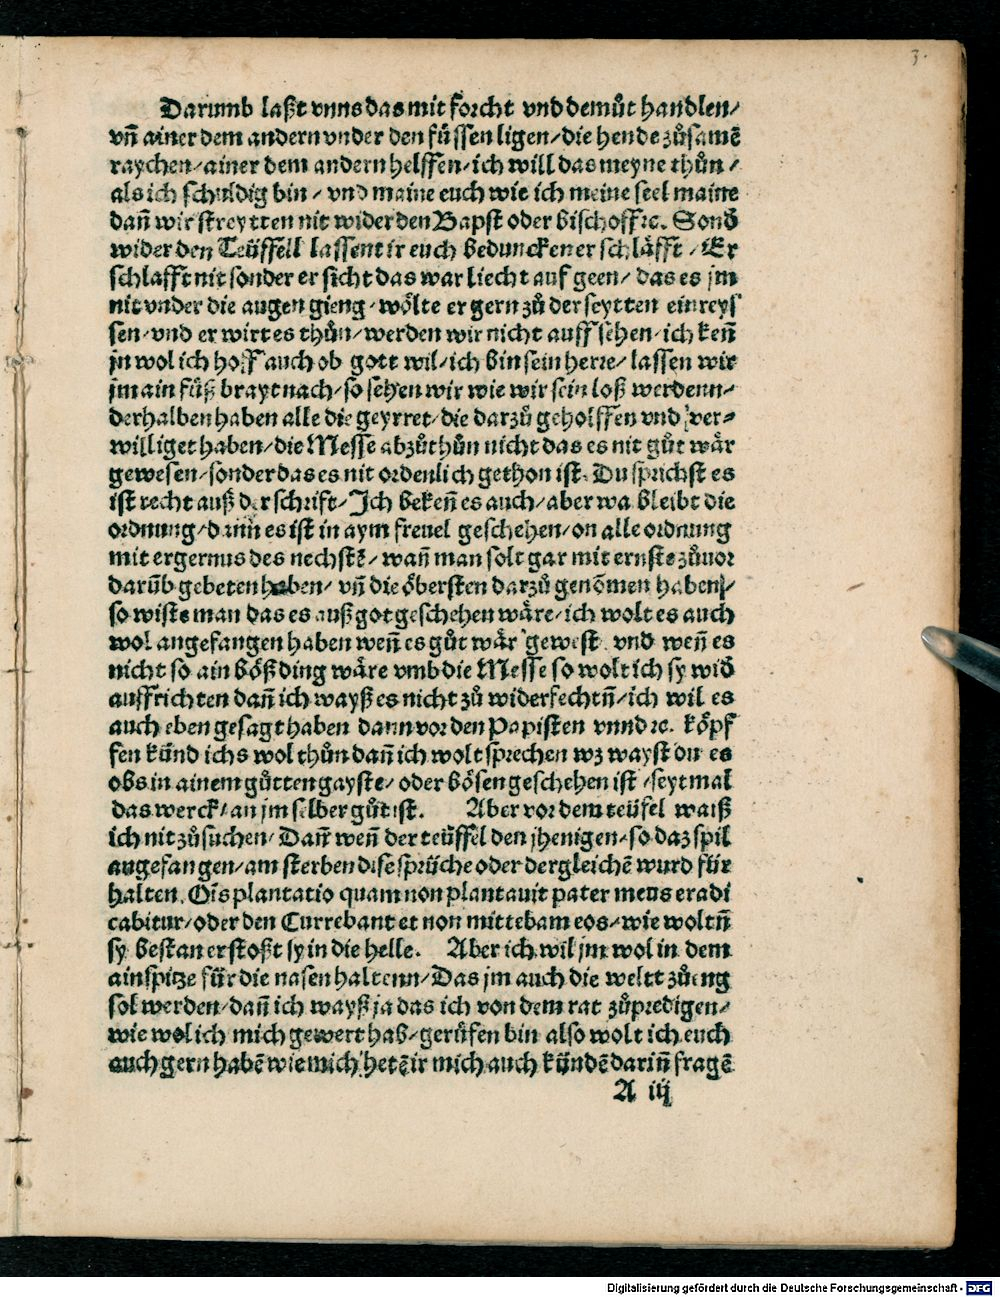 3.
Darumb laßt vnns das mit forcht vnd demůt handlen/
vñ ainer dem andern vnder den füssen ligen/ die hende zůsamē
raychen/ ainer dem andern helffen/ ich will das meyne thůn/
als ich schuldig bin/ vnd maine euch wie ich meine seel maine
dañ wir streytten nit wider den Bapst oder bischoff ꝛc. Sond̄
wider den Teüffell lassent ir euch beduncken er schläfft/ Er
schlafft nit sonder er sicht das war liecht auf geen/ das es jm
nit vnder die augen gieng/ wölte er gern zů der seytten einreys
sen/ vnd er wirt es thůn/ werden wir nicht auff sehen/ ich keñ
jn wol ich hoff auch ob gott wil/ ich bin sein herre/ lassen wir
jm ain fůß brayt nach/ so sehen wir wie wir sein loß werdenn/
derhalben haben alle die geyrret/ die darzů geholffen vnd ver⸗
williget haben/ die Messe abzůthůn nicht das es nit gůt wär
gewesen/ sonder das es nit ordenlich gethon ist. Du sprichst es
ist recht auß der schrift/ Ich bekeñ es auch/ aber wa bleibt die
ordnung/ dann es ist in aym freuel geschehen/ on alle ordnung
mit ergernus des nechstē/ wañ man solt gar mit ernste zůuor
darüb gebeten haben/ vñ die öbersten darzů genōmen haben/
so wiste man das es auß got geschehen wäre/ ich wolt es auch
wol angefangen haben weñ es gůt wär gewest. vnd weñ es
nicht so ain bößding wäre vmb die Messe so wolt ich sy wid̄
auffrichten dañ ich wayß es nicht zů widerfechtñ/ ich wil es
auch eben gesagt haben dann vor den Papisten vnnd ꝛc. köpf
fen künd ichs wol thůn dañ ich wolt sprechen wz wayst du es
obs in ainem gůtten gayste/ oder bösen geschehen ist/ seytmal
das werck/ an jm selber gůt ist. Aber vor dem teüfel waiß
ich nit zůsuchen/ Dañ weñ der teüffel den jhenigen/ so daz spil
angefangen/ am sterben dise sprüche oder dergleichē wurd für
halten. Oīs plantatio quam non plantauit pater meus eradi
cabitur/ oder den Currebant et non mittebam eos/ wie woltñ
sy bestan er stoßt sy in die helle. Aber ich wil jm wol in dem
ain spitze für die nasen haltenn/ Das jm auch die weltt zůeng
sol werden/ dañ ich wayß ja das ich von dem rat zůpredigen/
wie wol ich mich gewert hab/ gerůfen bin also wolt ich euch
auch gern habē wie mich/ hetē ir mich auch kündē dariñ fragē
A iij
Digitalisierung gefördert durch die Deutsche Forschungsgemeinschaft - DFG